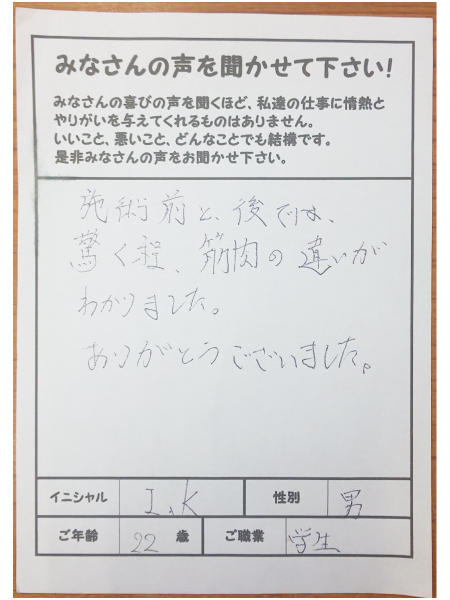 みなさんの声を聞かせて下さい!
みなさんの喜びの声を聞くほど、私達の仕事に情熱と
やりがいを与えてくれるものはありません。
いいこと、悪いこと、どんなことでも結構です。
是非みなさんの声をお聞かせ下さい。
施術前と、後では、
驚く程、筋肉の違いが
わかりました。
ありがとうございました。
イニシャル I、K 性別 男
ご年齢 22 歳 ご職業 学生